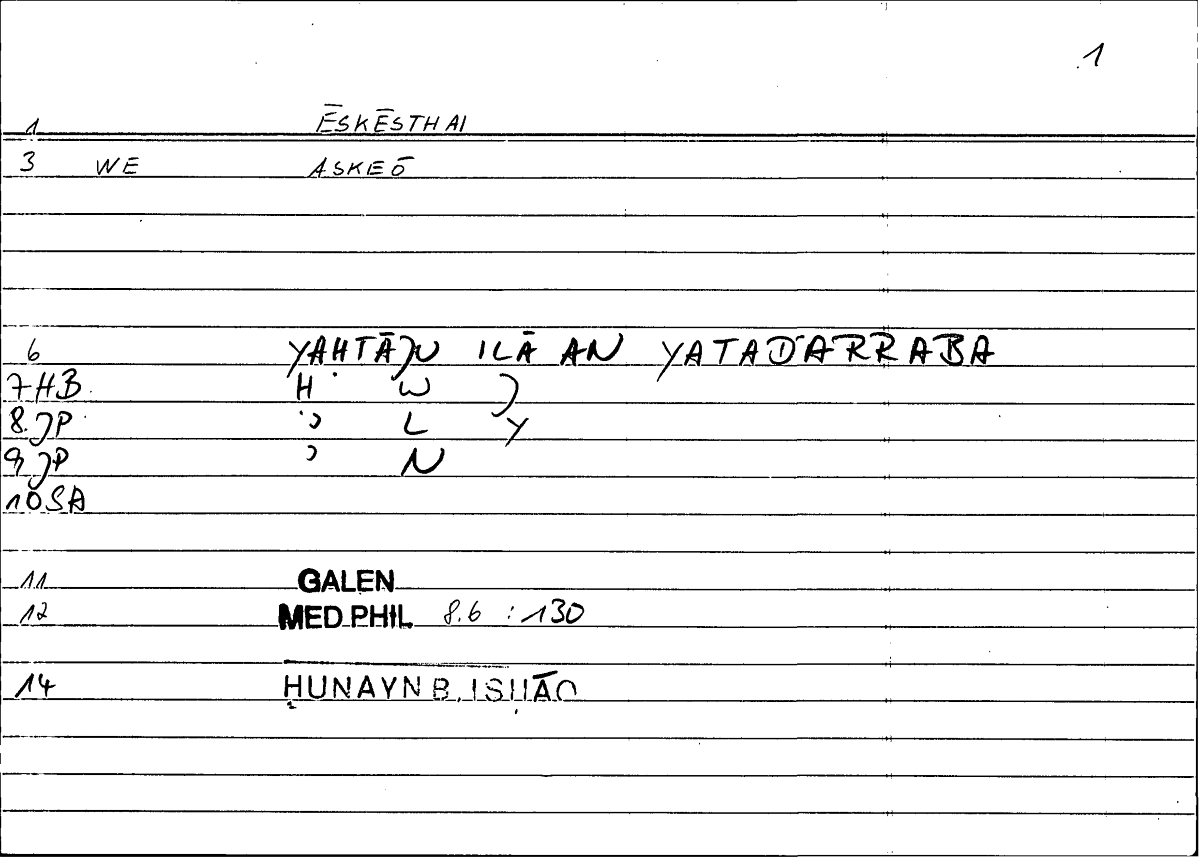 1
1 ĒSKĒSTHAI
3 WE ASKEŌ
6 YAḤTĀJU ILĀ AN YATADARRABA
7 HB. Ḥ W J
8. JP L Y
9 JP N
10 SA
11 GALEN
12 MED PHIL 8.6 : 130
14 ḤUNAYN B. ISḤĀQ